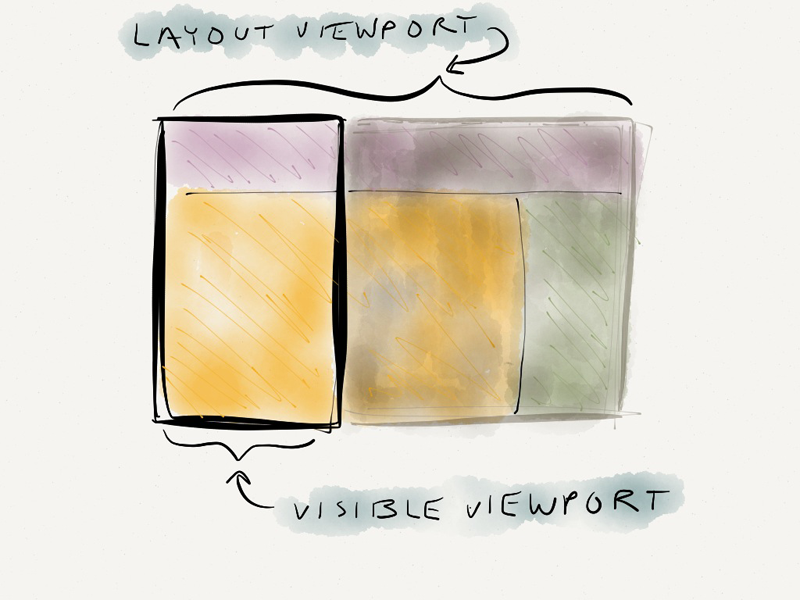 LAYOUT VIEWPORT
VISIBLE VIEWPORT